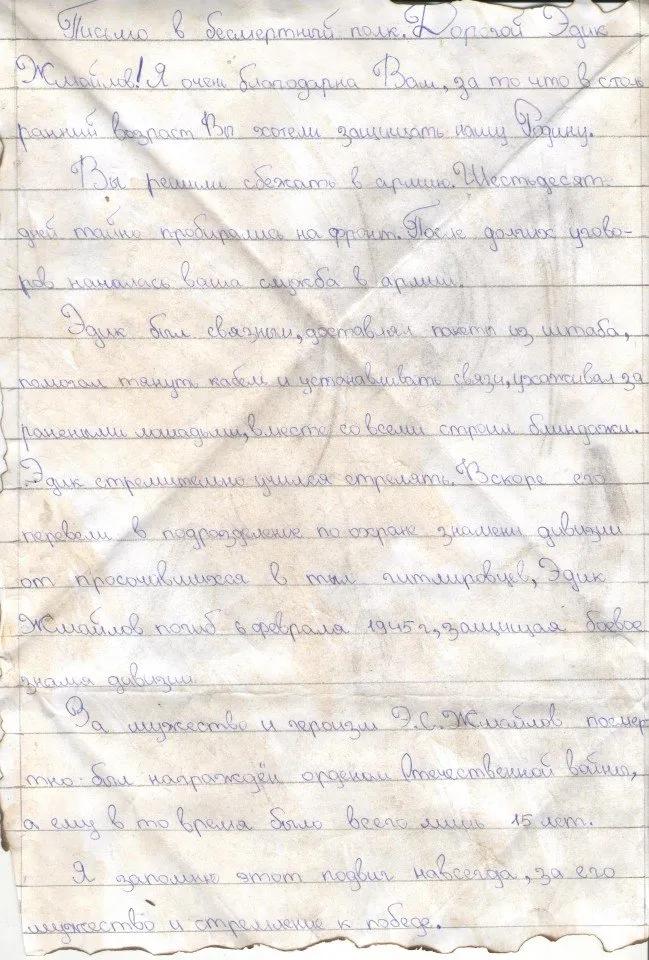 Письмо в бесмертный полк. Дорогой Эдик
Жмайлов! Я очень благодарна Вам, за то что в столь
ранний возраст Вы хотели защищать нашу Родину.
Вы решили сбежать в армию. Шестьдесят
дней тайно пробирались на фронт. После долгих угово-
ров началась ваша служба в армии.
Эдик был связным, доставлял пакеты из штаба,
помогал тянуть кабель и устанавливать связи, ухаживал за
ранеными лошадьми, вместе со всеми строил блиндажи.
Эдик стремительно учился стрелять. Вскоре его
перевели в подразделение по охране знамени дивизии
от просочившихся в тыл гитлировцев, Эдик
Жмайлов погиб 6 февраля 1945 г, защищая боевое
знамя дивизии.
За мужество и героизм Э.С. Жмайлов посмер
тно был награждён орденом Отечественной войны,
а ему в то время было всего лишь 15 лет.
Я запомню этот подвиг навсегда, за его
мужество и стремление к победе.